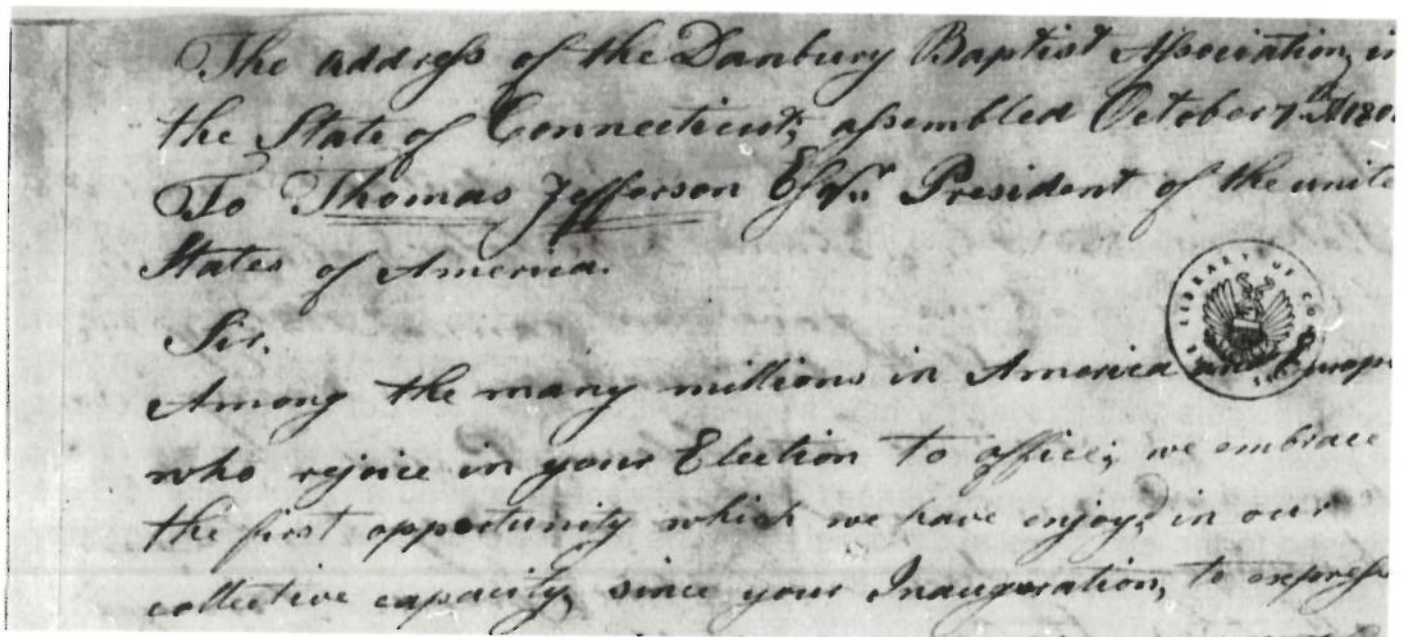 The address of the Danbury Baptist Association, in
the State of Connecticut; assembled October 7th AD 180
To Thomas Jefferson Esqr. President of the unite
States of America.
Sir,
Among the many millions in America and Europe
who rejoice in your Election to office; we embrace
the first opportunity which we have enjoyd in our
collective capacity, since your Inauguration, to express
LIBRARY OF CON